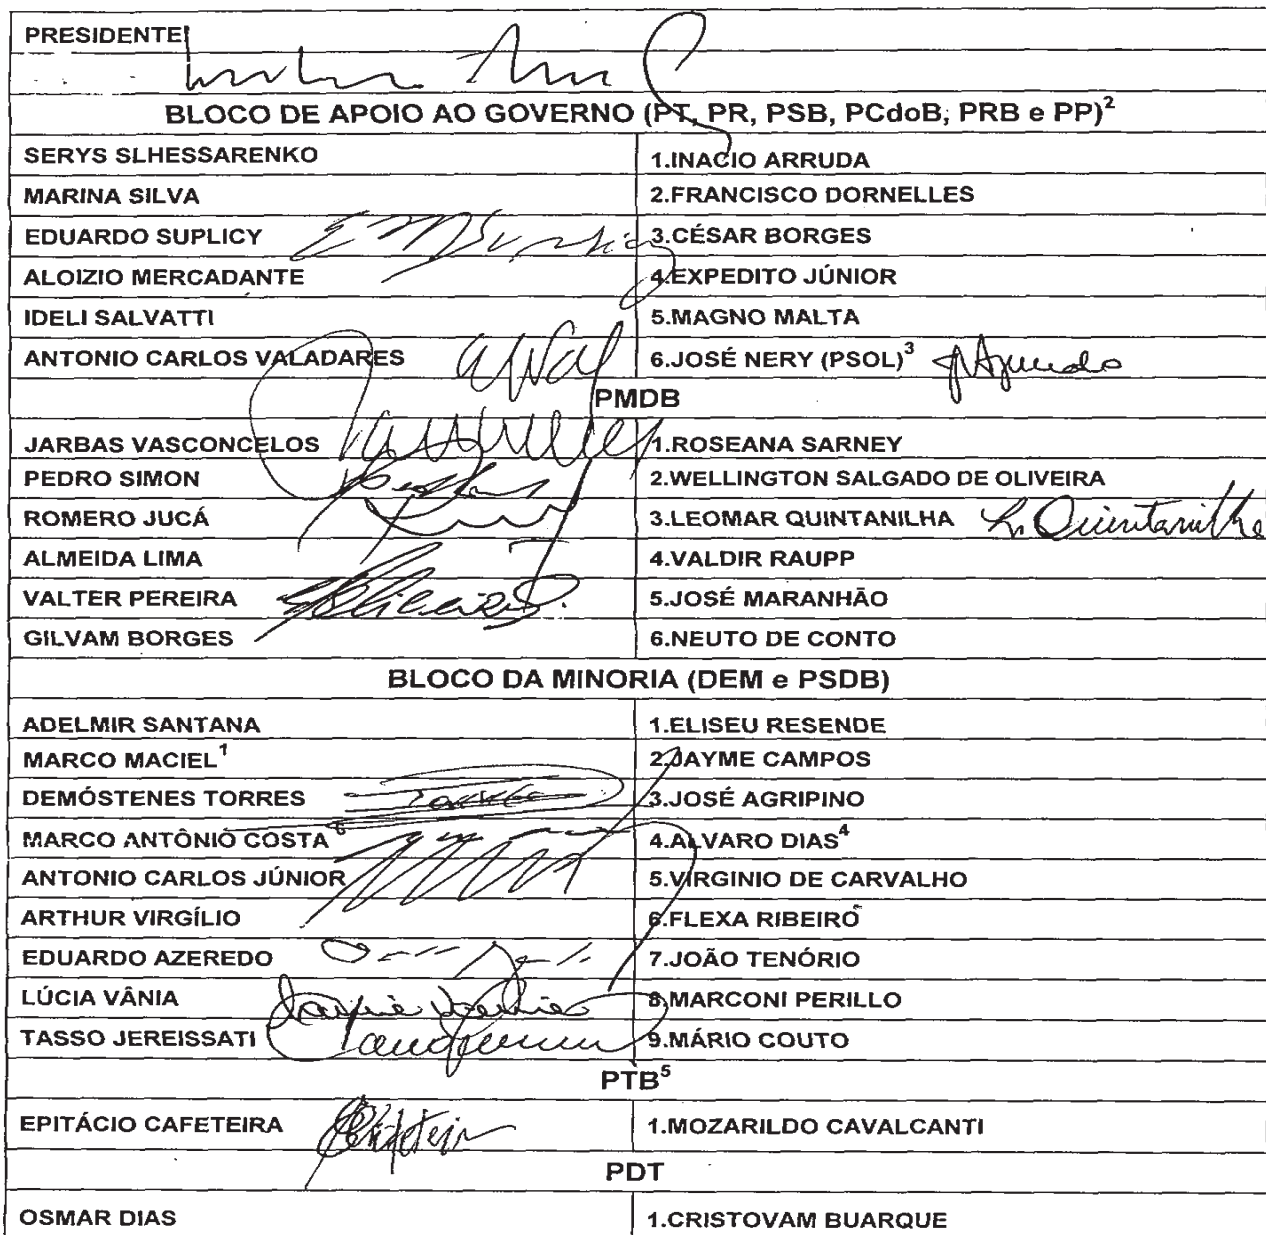 PRESIDENTE
BLOCO DE APOIO AO GOVERNO (PT, PR, PSB, PCdoB, PRB e PP)²
SERYS SLHESSARENKO 1.INACIO ARRUDA
MARINA SILVA 2.FRANCISCO DORNELLES
EDUARDO SUPLICY 3.CÉSAR BORGES
ALOIZIO MERCADANTE 4.EXPEDITO JÚNIOR
IDELI SALVATTI 5.MAGNO MALTA
ANTONIO CARLOS VALADARES 6.JOSÉ NERY (PSOL)³
PMDB
JARBAS VASCONCELOS 1.ROSEANA SARNEY
PEDRO SIMON 2.WELLINGTON SALGADO DE OLIVEIRA
ROMERO JUCÁ 3.LEOMAR QUINTANILHA Quintanilha
ALMEIDA LIMA 4.VALDIR RAUPP
VALTER PEREIRA 5.JOSÉ MARANHÃO
GILVAM BORGES 6.NEUTO DE CONTO
BLOCO DA MINORIA (DEM e PSDB)
ADELMIR SANTANA 1.ELISEU RESENDE
MARCO MACIEL¹ 2.JAYME CAMPOS
DEMÓSTENES TORRES 3.JOSÉ AGRIPINO
MARCO ANTÔNIO COSTA⁶ 4.ALVARO DIAS⁴
ANTONIO CARLOS JÚNIOR 5.VIRGINIO DE CARVALHO
ARTHUR VIRGÍLIO 6.FLEXA RIBEIRO
EDUARDO AZEREDO 7.JOÃO TENÓRIO
LÚCIA VÂNIA 8.MARCONI PERILLO
TASSO JEREISSATI 9.MÁRIO COUTO
PTB⁵
EPITÁCIO CAFETEIRA 1.MOZARILDO CAVALCANTI
PDT
OSMAR DIAS 1.CRISTOVAM BUARQUE